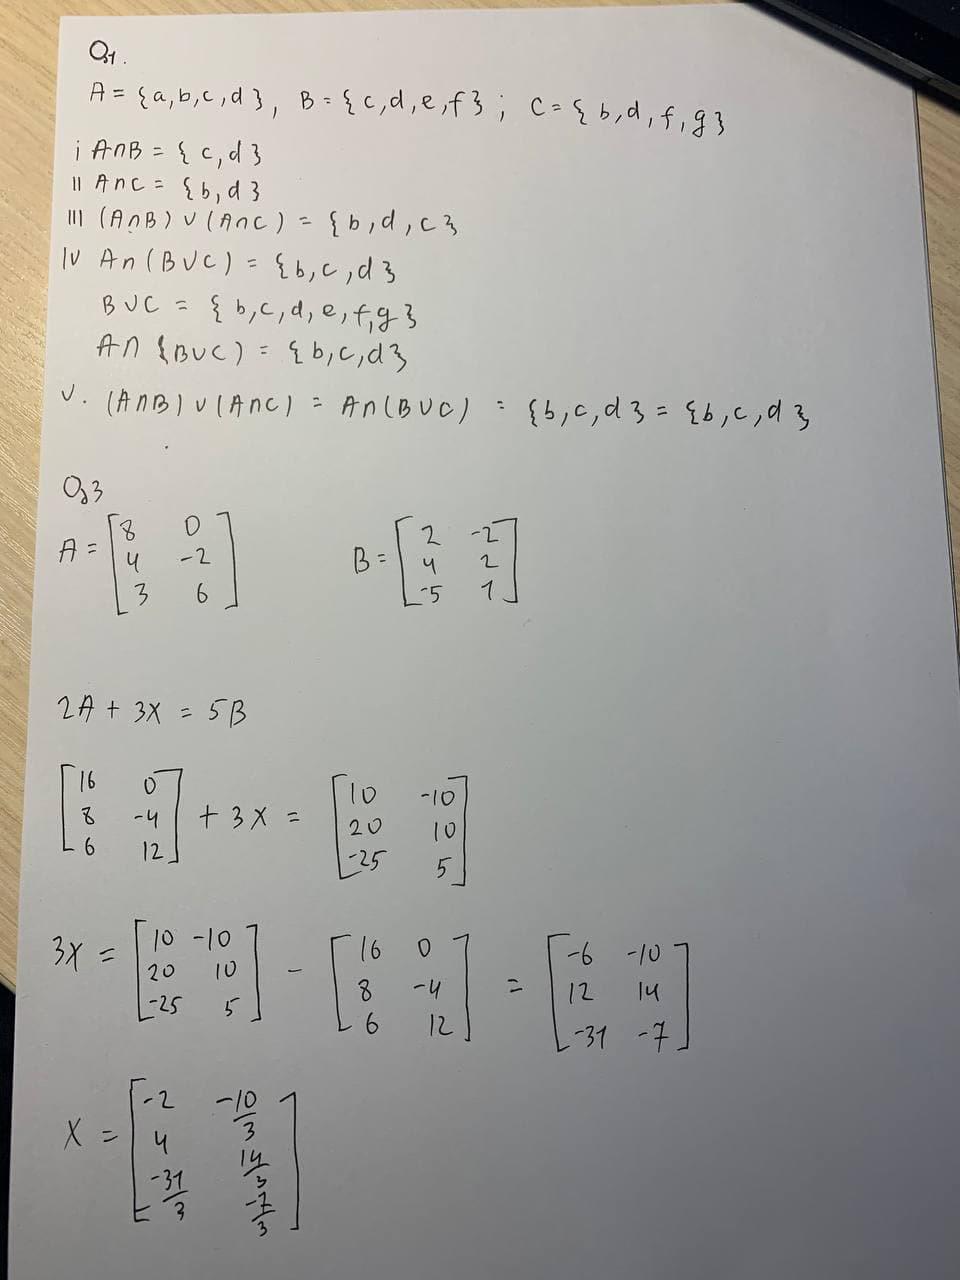 Q1.
A = {a,b,c,d}, B = {c,d,e,f}; C = {b,d,f,g}
i A∩B = {c,d}
II A∩C = {b,d}
III (A∩B) ∪ (A∩C) = {b,d,c}
IV A∩(B∪C) = {b,c,d}
B∪C = {b,c,d,e,f,g}
A∩{B∪C) = {b,c,d}
V. (A∩B) ∪ (A∩C) = A∩(B∪C) = {b,c,d} = {b,c,d}
Q3
A = [8 0 B = [2 -2
4 -2 4 2
3 6] -5 1]
2A + 3X = 5B
[16 0 [10 -10
8 -4 + 3X = 20 10
6 12] -25 5]
3X = [10 -10 [16 0 [-6 -10
20 10 - 8 -4 = 12 14
-25 5] 6 12] -31 -7]
X = [-2 -10/3
4 14/3
-31/3 -7/3]